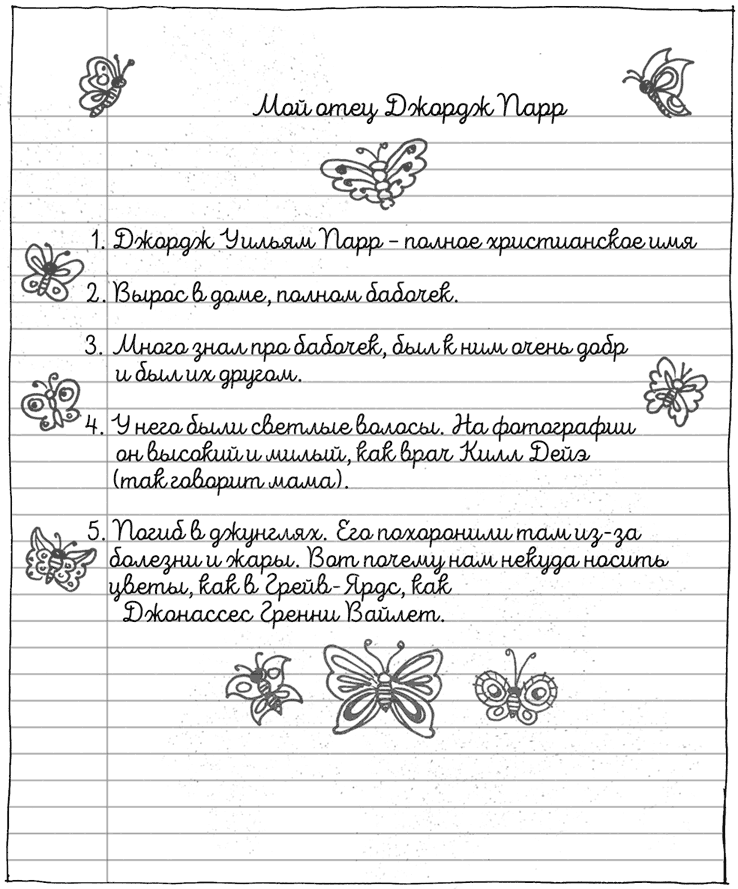 Мой отец Джордж Парр
1. Джордж Уильям Парр – полное христианское имя
2. Вырос в доме, полном бабочек.
3. Много знал про бабочек, был к ним очень добр
и был их другом.
4. У него были светлые волосы. На фотографии
он высокий и милый, как врач Килл Дейэ
(так говорит мама).
5. Погиб в джунглях. Его похоронили там из-за
болезни и жары. Вот почему нам некуда носить
цветы, как в Грейв-Ярдс, как
Джонассес Гренни Вайлет.